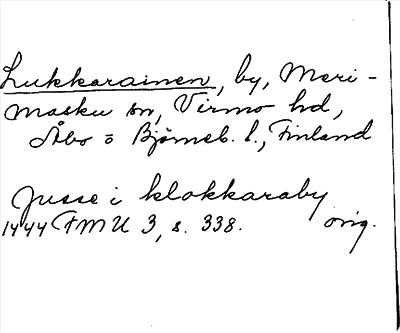 Lukkarainen, by, Meri-
masku sn, Virmo hd,
Åbo o Björneb. l., Finland
Jusse i klokkaraby
1444 FMU 3, s. 338. orig.